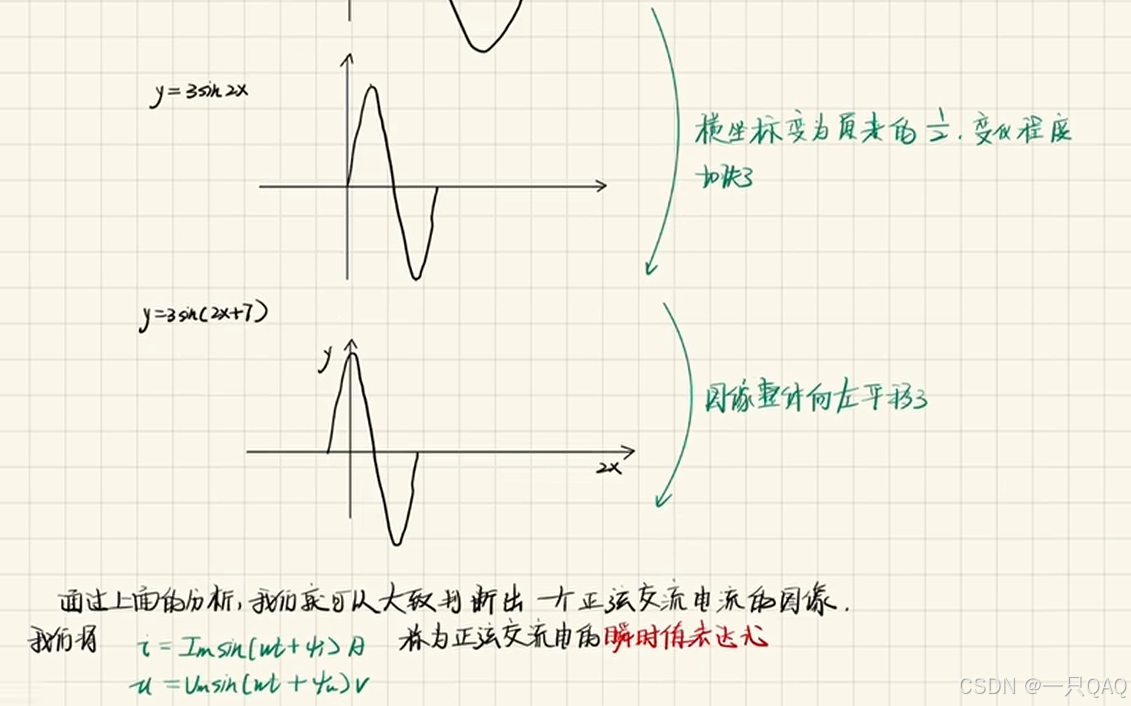 y=3sin2x
横坐标变为原来的 1/2，变化程度
加快了
y=3sin(2x+7)
y
图像整体向左平移了
2x
通过上面的分析，我们就可以大致判断出一个正弦交流电流的图像.
我们将 i=Imsin(ωt+ψi)A 称为正弦交流电的瞬时值表达式
u=Umsin(ωt+ψu)V
CSDN @一只QAQ